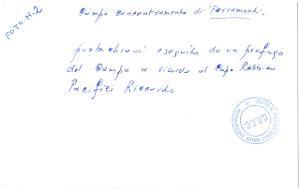 FOTO.N.2
Campo concentramento di Ferramonti.
portachiavi eseguito da un profugo
del Campo a ricordo al Capo Rabbino
Pacifici Riccardo